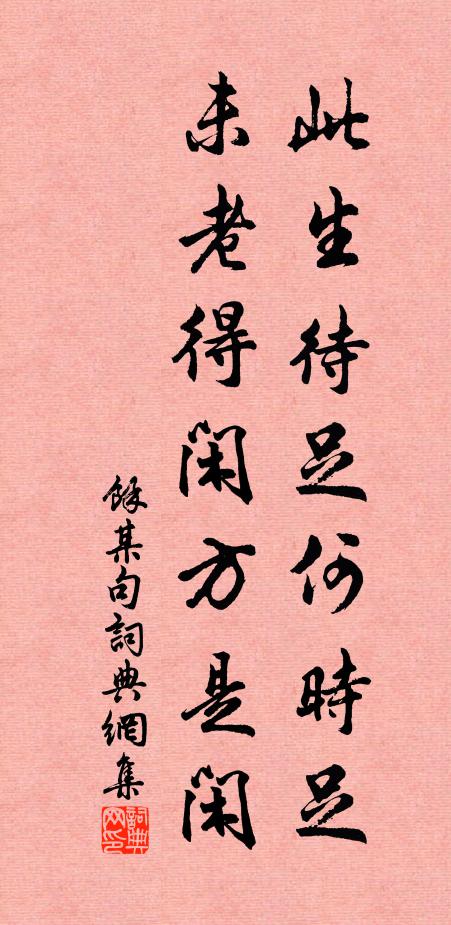 此生待足何時足
未老得閑方是閑
餘某句詞典網集
詞典网印